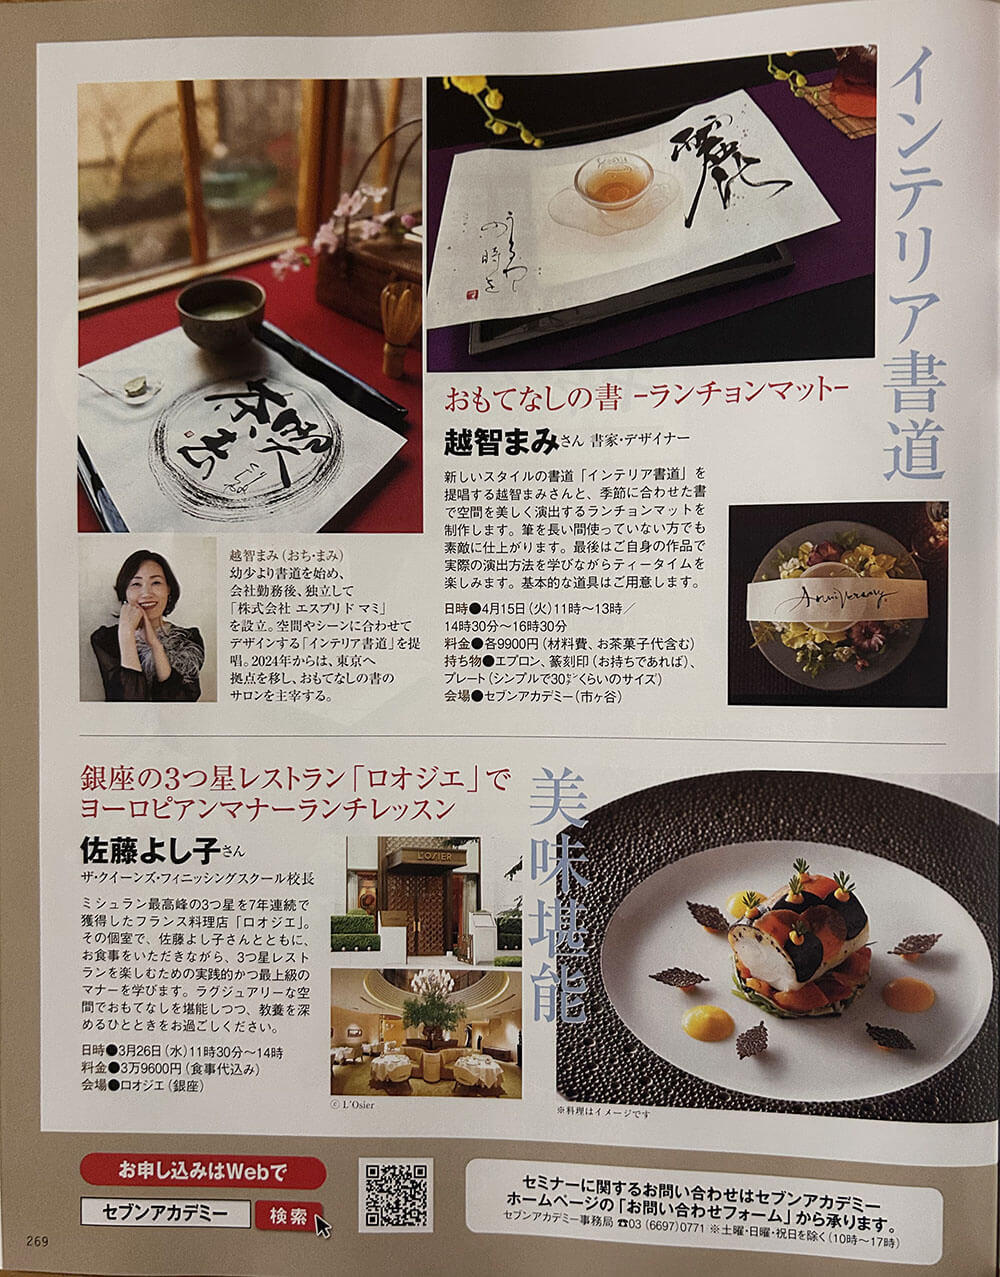 インテリア書道
麗
うるわし
の時を
おもてなしの書 −ランチョンマット−
越智まみさん 書家・デザイナー
新しいスタイルの書道「インテリア書道」を
提唱する越智まみさんと、季節に合わせた書
で空間を美しく演出するランチョンマットを
制作します。筆を長い間使っていない方でも
素敵に仕上がります。最後はご自身の作品で
実際の演出方法を学びながらティータイムを
楽しみます。基本的な道具はご用意します。
日時●4月15日（火）11時〜13時／
14時30分〜16時30分
料金●各9900円（材料費、お茶菓子代含む）
持ち物●エプロン、篆刻印（お持ちであれば）、
プレート（シンプルで30㌢くらいのサイズ）
会場●セブンアカデミー（市ヶ谷）
Anniversary
越智まみ（おち・まみ）
幼少より書道を始め、
会社勤務後、独立して
「株式会社 エスプリド マミ」
を設立。空間やシーンに合わせて
デザインする「インテリア書道」を提
唱。2024年からは、東京へ
拠点を移し、おもてなしの書の
サロンを主宰する。
美味堪能
銀座の3つ星レストラン「ロオジエ」で
ヨーロピアンマナーランチレッスン
佐藤よし子さん
ザ・クイーンズ・フィニッシングスクール校長
ミシュラン最高峰の3つ星を7年連続で
獲得したフランス料理店「ロオジエ」。
その個室で、佐藤よし子さんとともに、
お食事をいただきながら、3つ星レスト
ランを楽しむための実践的かつ最上級の
マナーを学びます。ラグジュアリーな空
間でおもてなしを堪能しつつ、教養を深
めるひとときをお過ごしください。
日時●3月26日（水）11時30分〜14時
料金●3万9600円（食事代込み）
会場●ロオジエ（銀座）
L'OSIER
© L'Osier
※料理はイメージです
お申し込みはWebで
セブンアカデミー 検索
セミナーに関するお問い合わせはセブンアカデミー
ホームページの「お問い合わせフォーム」から承ります。
セブンアカデミー事務局 ☎03（6697）0771 ※土曜・日曜・祝日を除く（10時〜17時）
269